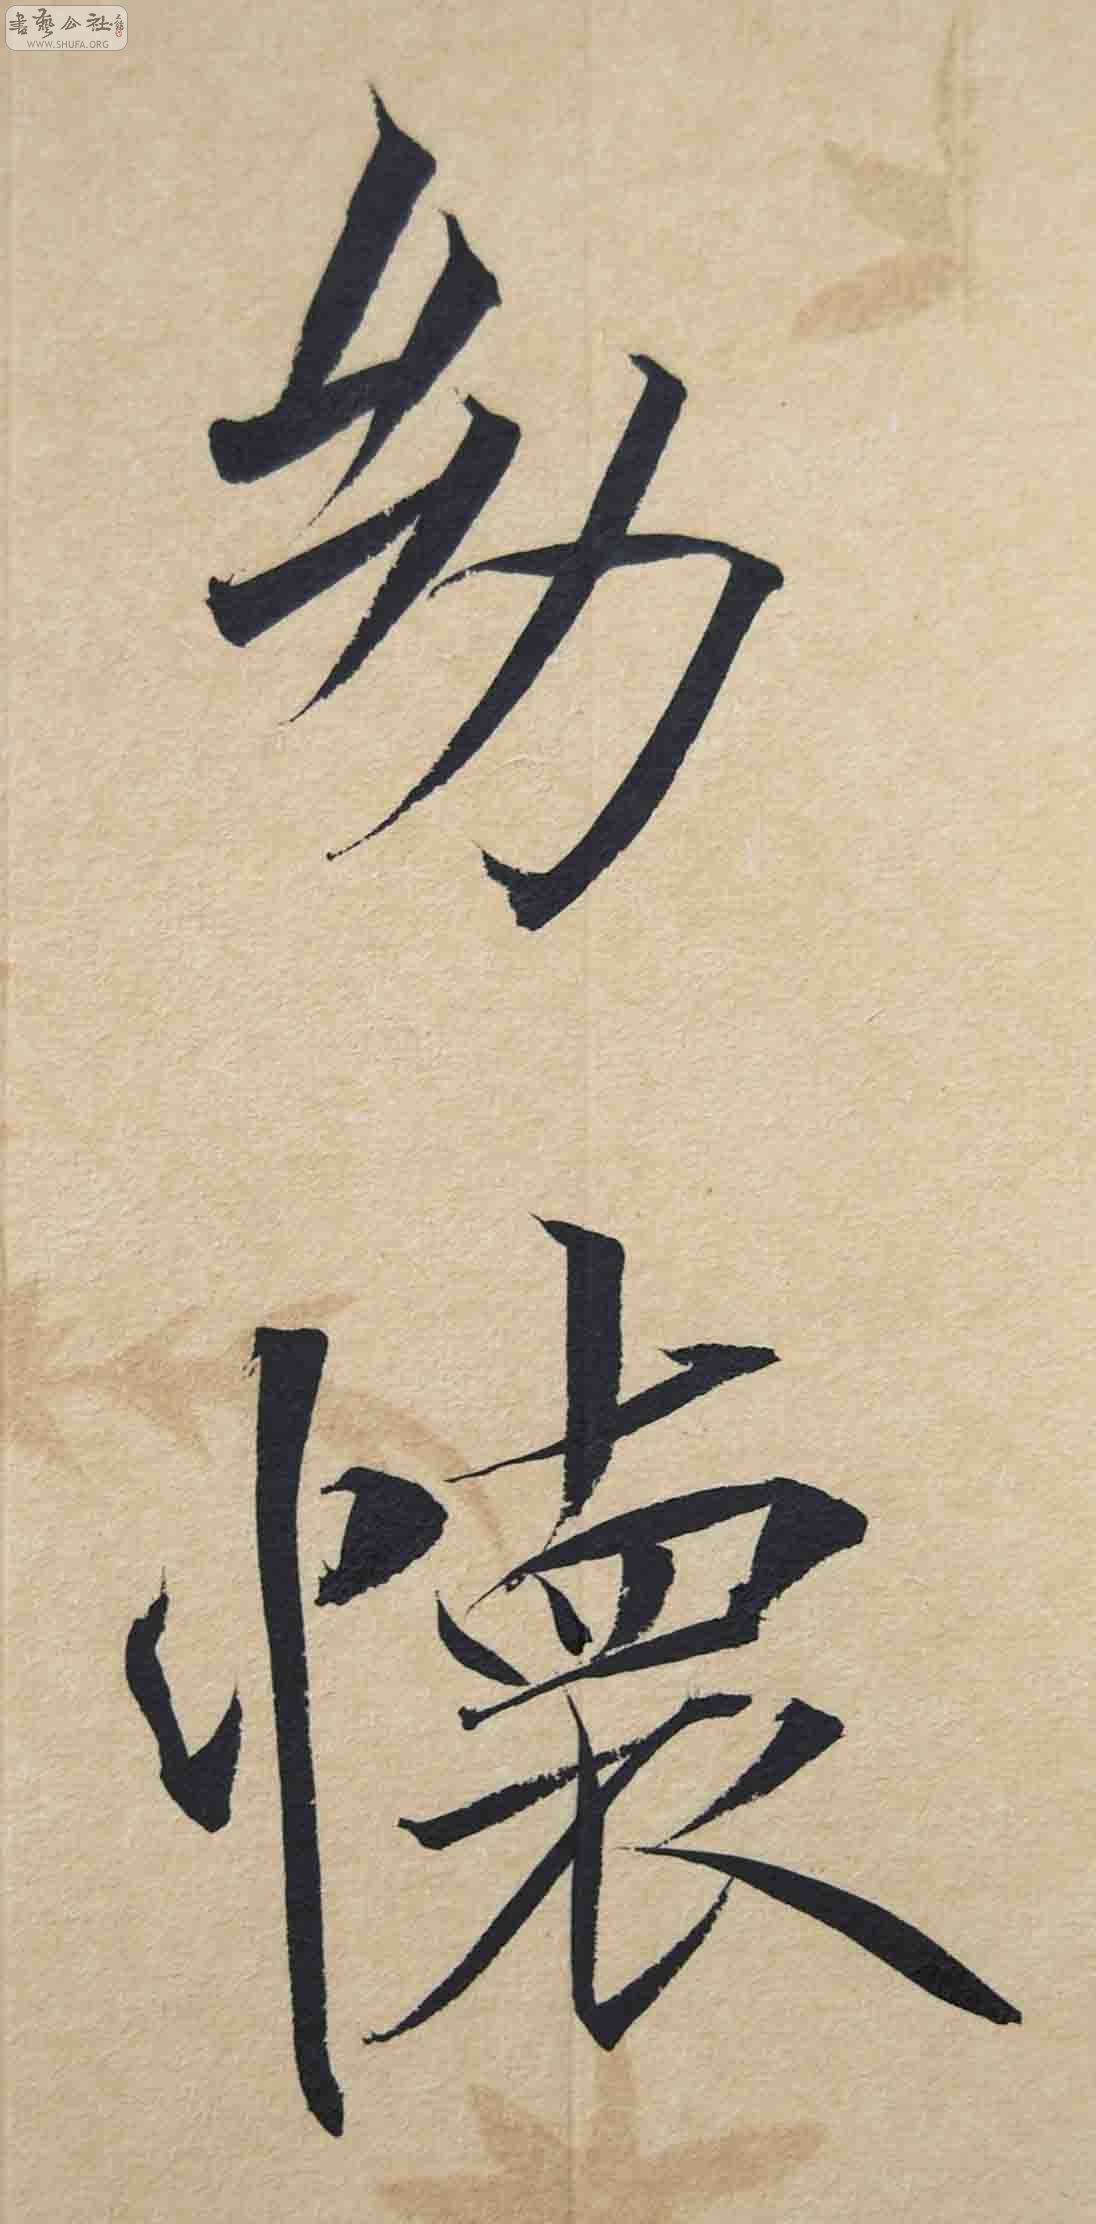 書藝公社
WWW.SHUFA.ORG
幼
懷